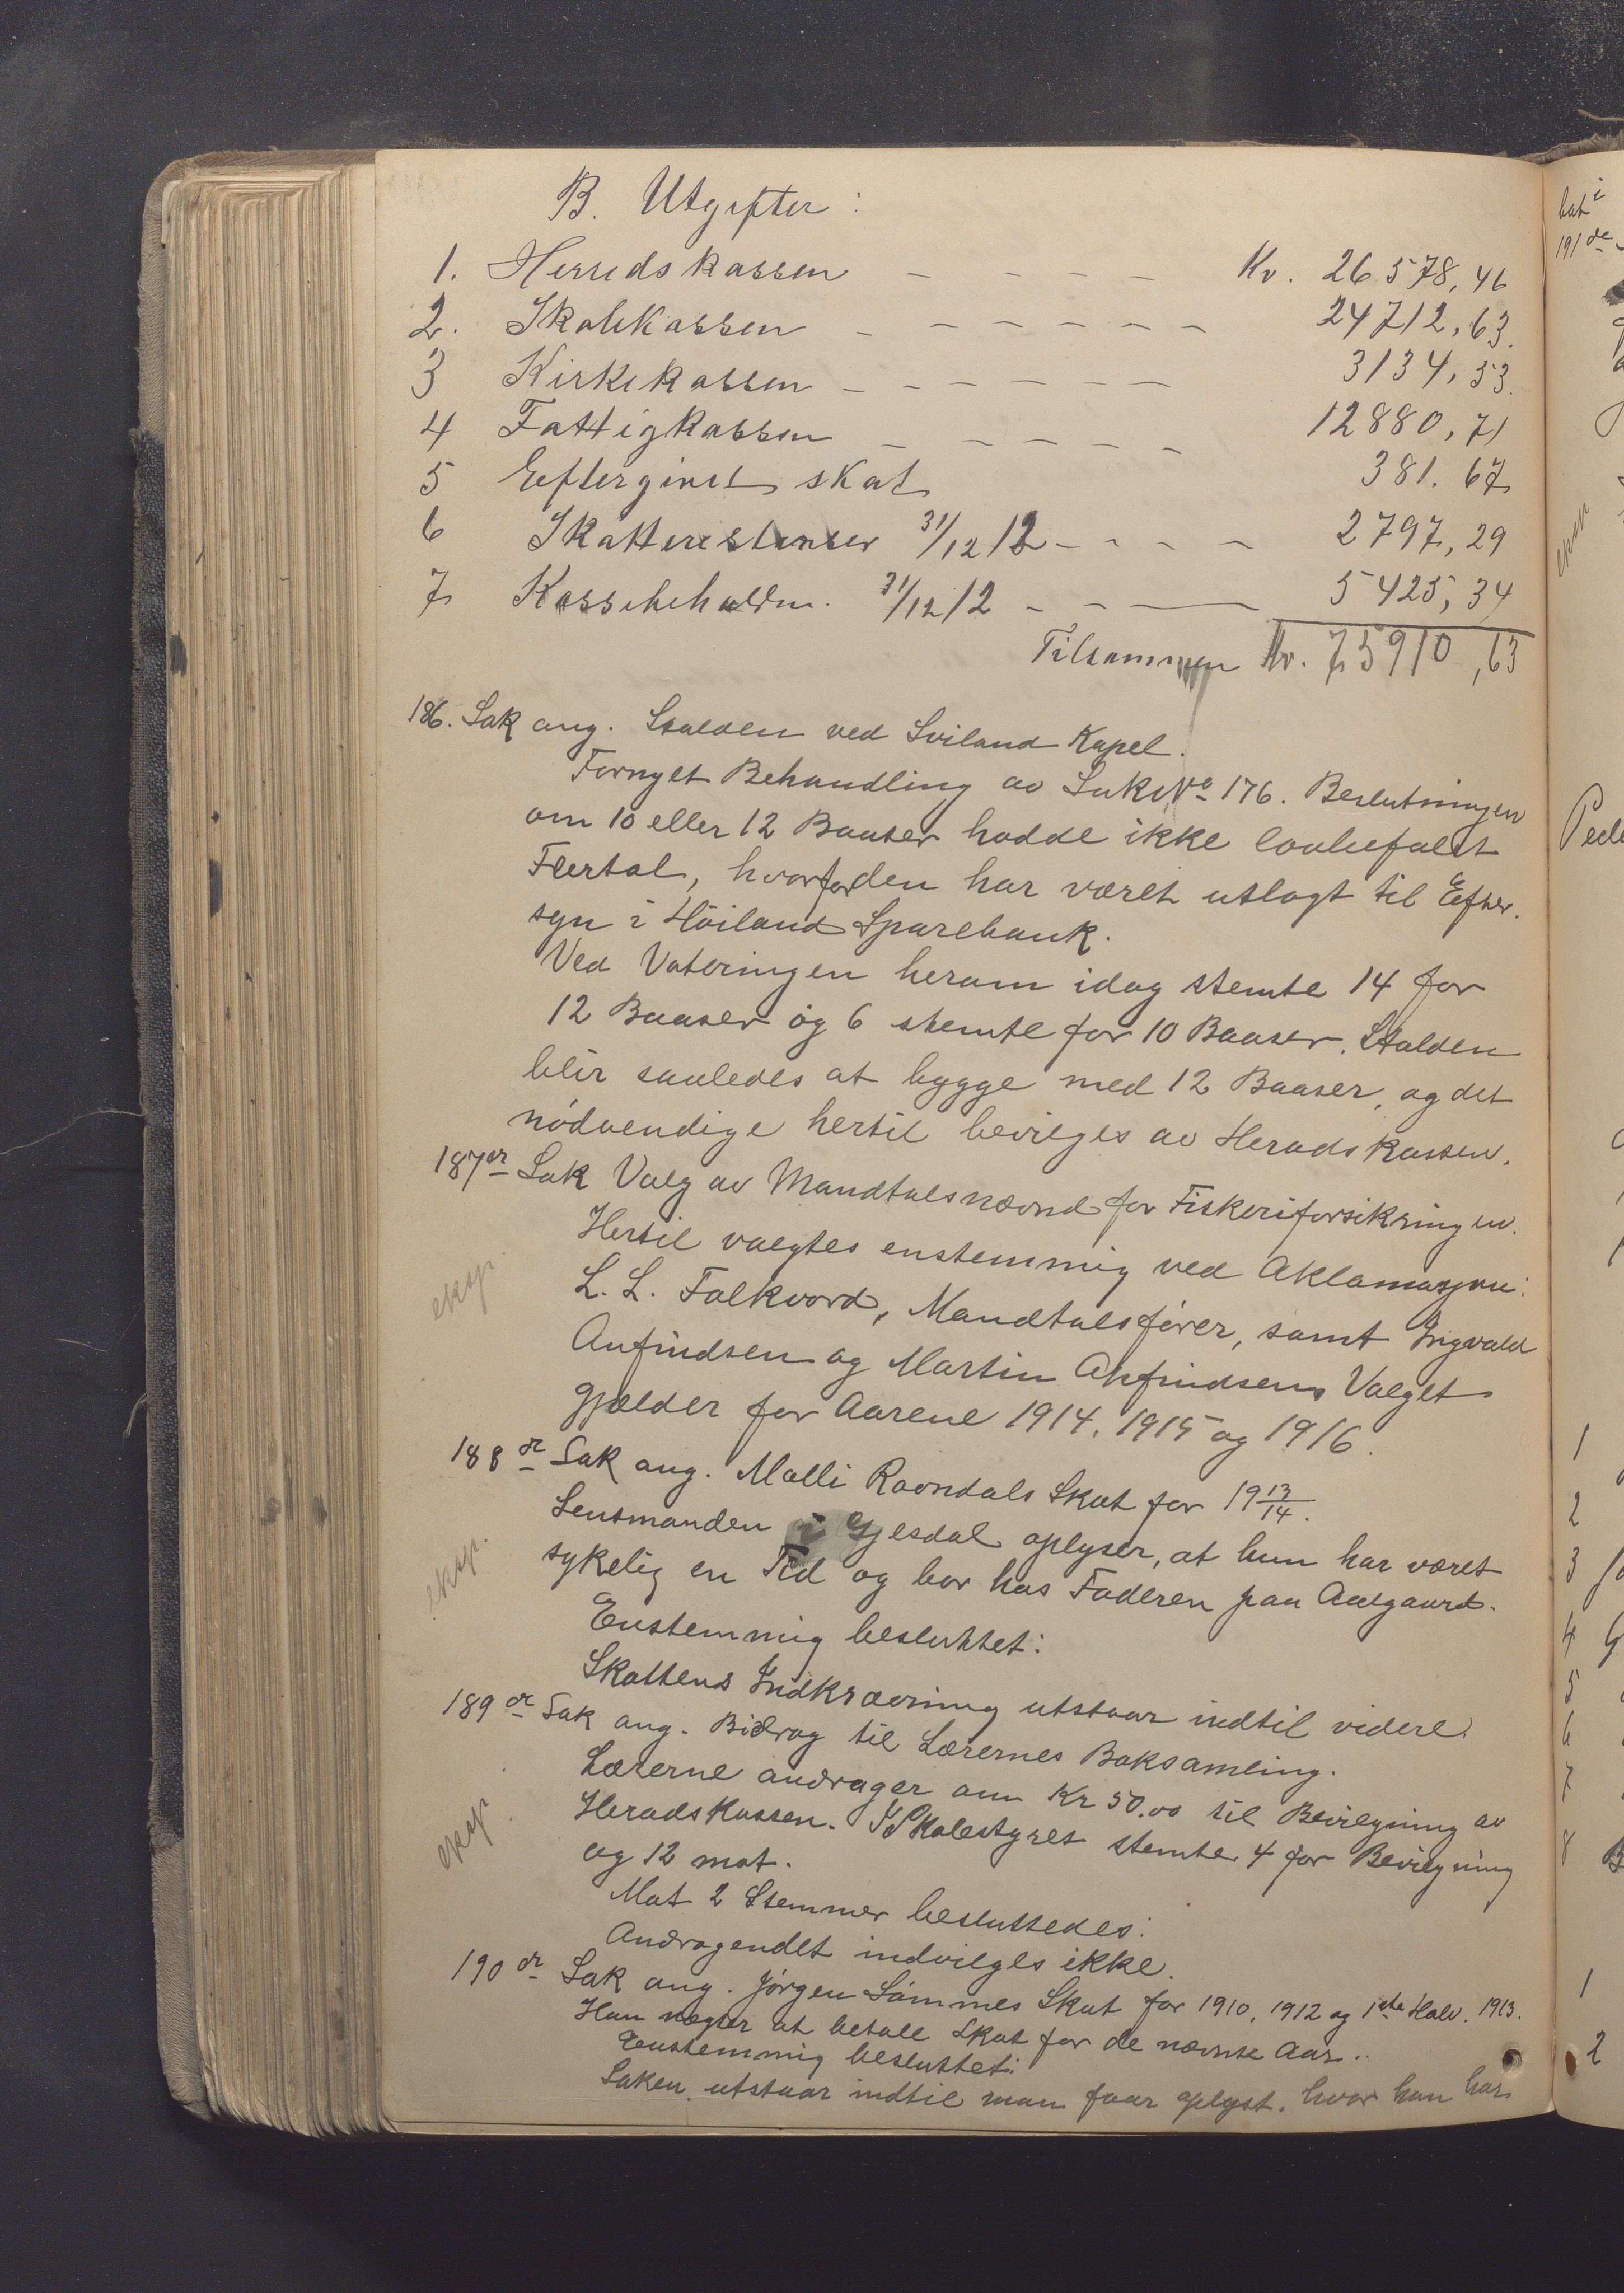 B. Utgifter:
1. Herredskassen – – – – – Kr. 26578,46
2. Skolekassen – – – – – – 24712,63
3 Kirkekassen – – – – – – 3134,53
4 Fattigkassen – – – – – 12880,71
5 Eftergivet skat 381.67
6 Skatterestanser 31/12 12 – – – – 2797,29
7 Kassebeholdn. 31/12 12 – – – 5425,34
Tilsammen Kr. 75910,63
186. Sak ang. Stalden ved Sviland Kapel.
Fornyet Behandling av Sak No 176. Beslutningen
om 10 eller 12 Baaser hadde ikke lovbefalet
Flertal, hvorfor den har været utlagt til Efter-
syn i Höiland Sparebank.
Ved Voteringen herom idag stemte 14 for
12 Baaser og 6 stemte for 10 Baaser. Stalden
blir saaledes at bygge med 12 Baaser, og det
nödvendige hertil bevilges av Heradskassen.
187de Sak Valg av Mandtalsnævnd for Fiskeriforsikringen.
Hertil valgtes enstemmig ved Aklamasjon:
L. L. Folkvord, Mandtalsförer, samt Ingvald
Anfindsen og Martin Anfindsen, Valget
gjelder for Aarene 1914, 1915 og 1916.
188de Sak ang. Malli Ravndals Skat for 1913/14.
Lensmanden i Gjesdal oplyser, at hun har været
sykelig en Tid og bor hos Faderen paa Aalgaard.
Enstemmig besluttet:
Skattens Indkrævning utstaar indtil videre.
189de Sak ang. Bidrag til Lærernes Boksamling.
Lærerne andrager om Kr 50.00 til Bevilgning av
Heradskassen. I Skolestyret stemte 4 for Bevilgning
og 12 mot.
Mot 2 Stemmer besluttedes:
Andragendet indvilges ikke.
190de Sak ang. Jörgen Sömmes Skat for 1910, 1912 og 1ste Halv. 1913.
Han negter at betale Skat for de nævnte Aar.
Enstemmig besluttet:
Saken utstaar indtil man faar oplyst, hvor han har
eksp.
eksp.
eksp.